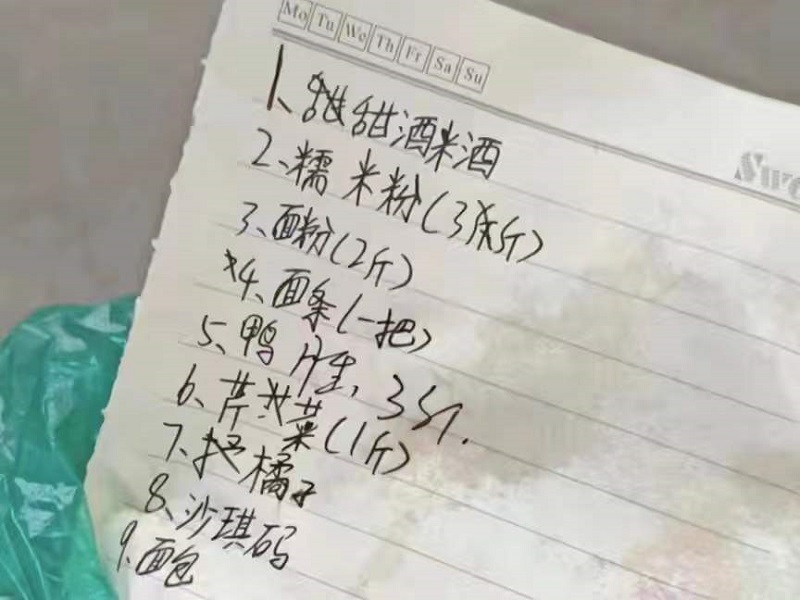 Mo Tu We Th Fr Sa Su
1、甜甜酒米酒
2、糯米粉(3斤)
3、面粉(2斤)
4、面条(一把)
5、鸭 3个.
6、芹菜(1斤)
7、橘子
8、沙琪码
9、面包